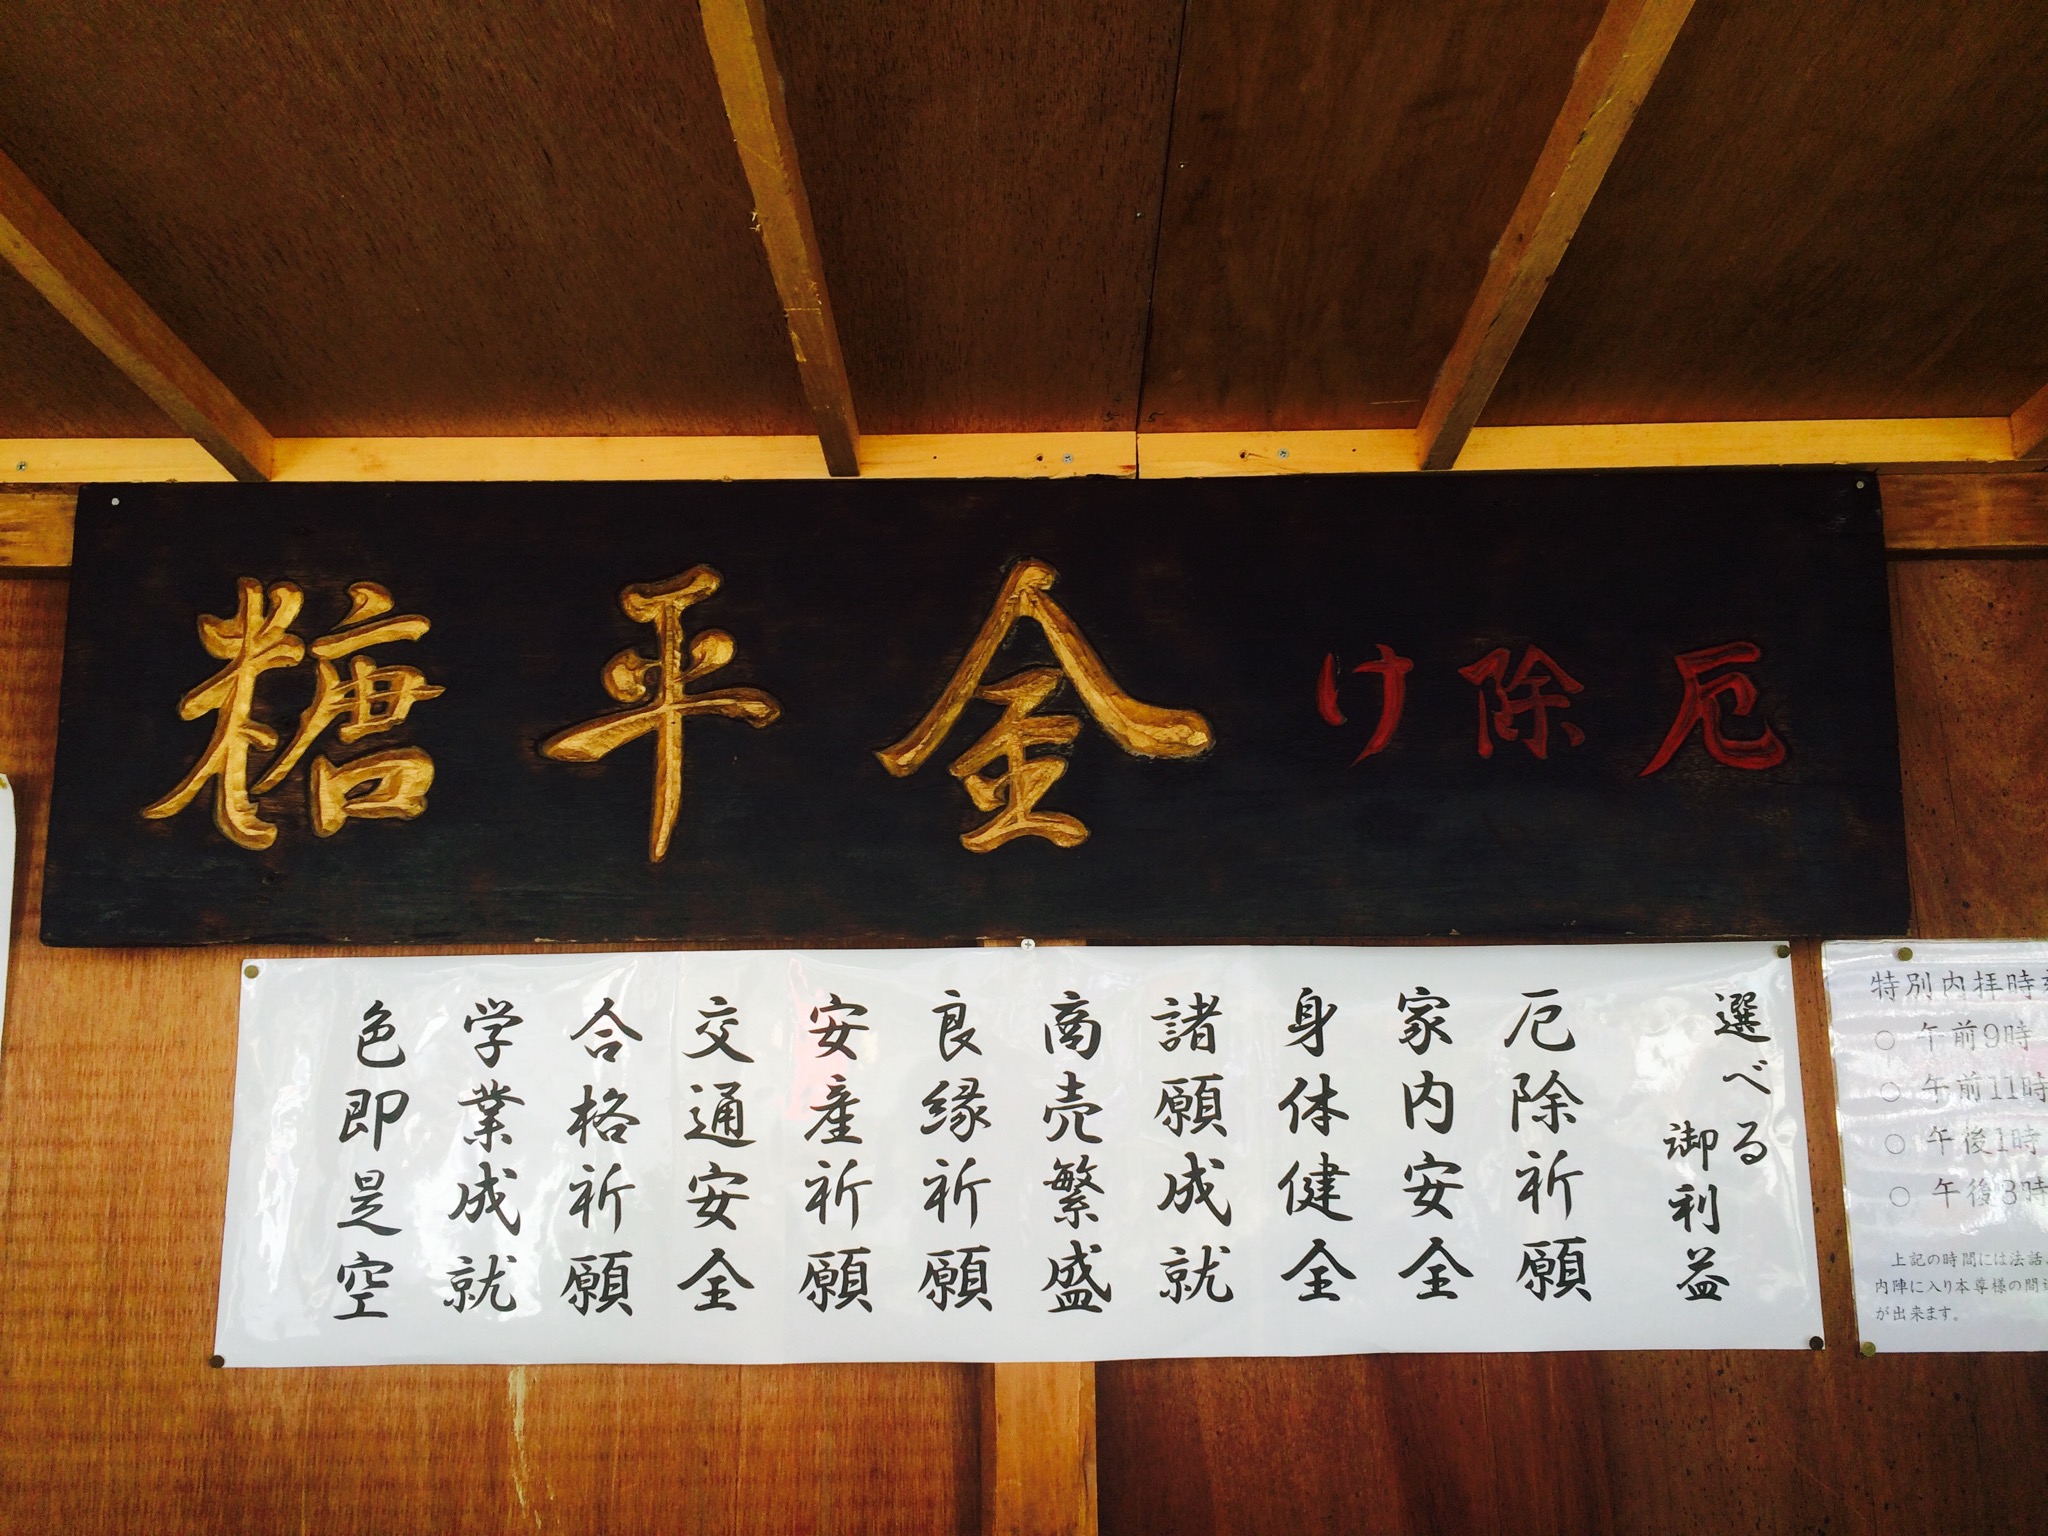 厄除け 金平糖
選べる
御利益
厄除祈願
家内安全
身体健全
諸願成就
商売繁盛
良縁祈願
安産祈願
交通安全
合格祈願
学業成就
色即是空
特別内拝時
○ 午前9時
○ 午前11時
○ 午後1時
○ 午後3時
上記の時間には法話
内陣に入り本尊様の間近
が出来ます。